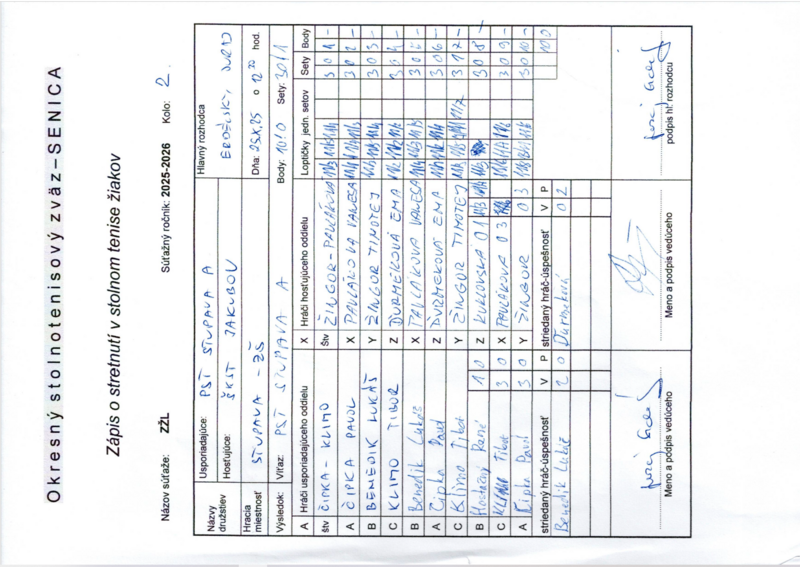 Okresný stolnotenisový zväz–SENICA
Zápis o stretnutí v stolnom tenise žiakov
Názov súťaže: ZŽL Súťažný ročník: 2025-2026 Kolo: 2.
Názvy družstiev
Usporiadajúce: PST STUPAVA A
Hosťujúce: ŠKST JAKUBOV
Hlavný rozhodca
Hracia miestnosť STUPAVA - ZŠ
Dňa: 25.X.25 o 12 30 hod.
Výsledok: Víťaz: PST STUPAVA A Body: 10:0 Sety: 30/1
A Hráči usporiadajúceho oddielu X Hráči hosťujúceho oddielu Loptičky jedn. setov Sety Body
štv ČIPKA - KLIMO štv ŽINGOR - PAVLÁKOVÁ 3 0 1 -
A ČIPKA PAVOL X PAVLÁKOVÁ VANESA 3 0 2 -
B BENEDIK LUKÁŠ Y ŽINGOR TIMOTEJ 3 0 3 -
C KLIMO TIBOR Z ĎURMEKOVÁ EMA 3 0 4 -
B Benedik Lukáš X PAVLÁKOVÁ VANESA 3 0 5 -
A Čipka Pavol Z ĎURMEKOVÁ EMA 3 0 6 -
C Klimo Tibor Y ŽINGOR TIMOTEJ 3 1 7 -
B 1 0 Z 0 1 3 0 8 -
C Klimo Tibor 3 0 X PAVLÁKOVÁ 0 3 3 0 9 -
A Čipka Pavol 3 0 Y ŽINGOR 0 3 3 0 10
striedaný hráč-úspešnosť V P striedaný hráč-úspešnosť V P
Benedik Lukáš 2 0 Ďurmeková 0 2
Meno a podpis vedúceho Meno a podpis vedúceho podpis hl. rozhodcu